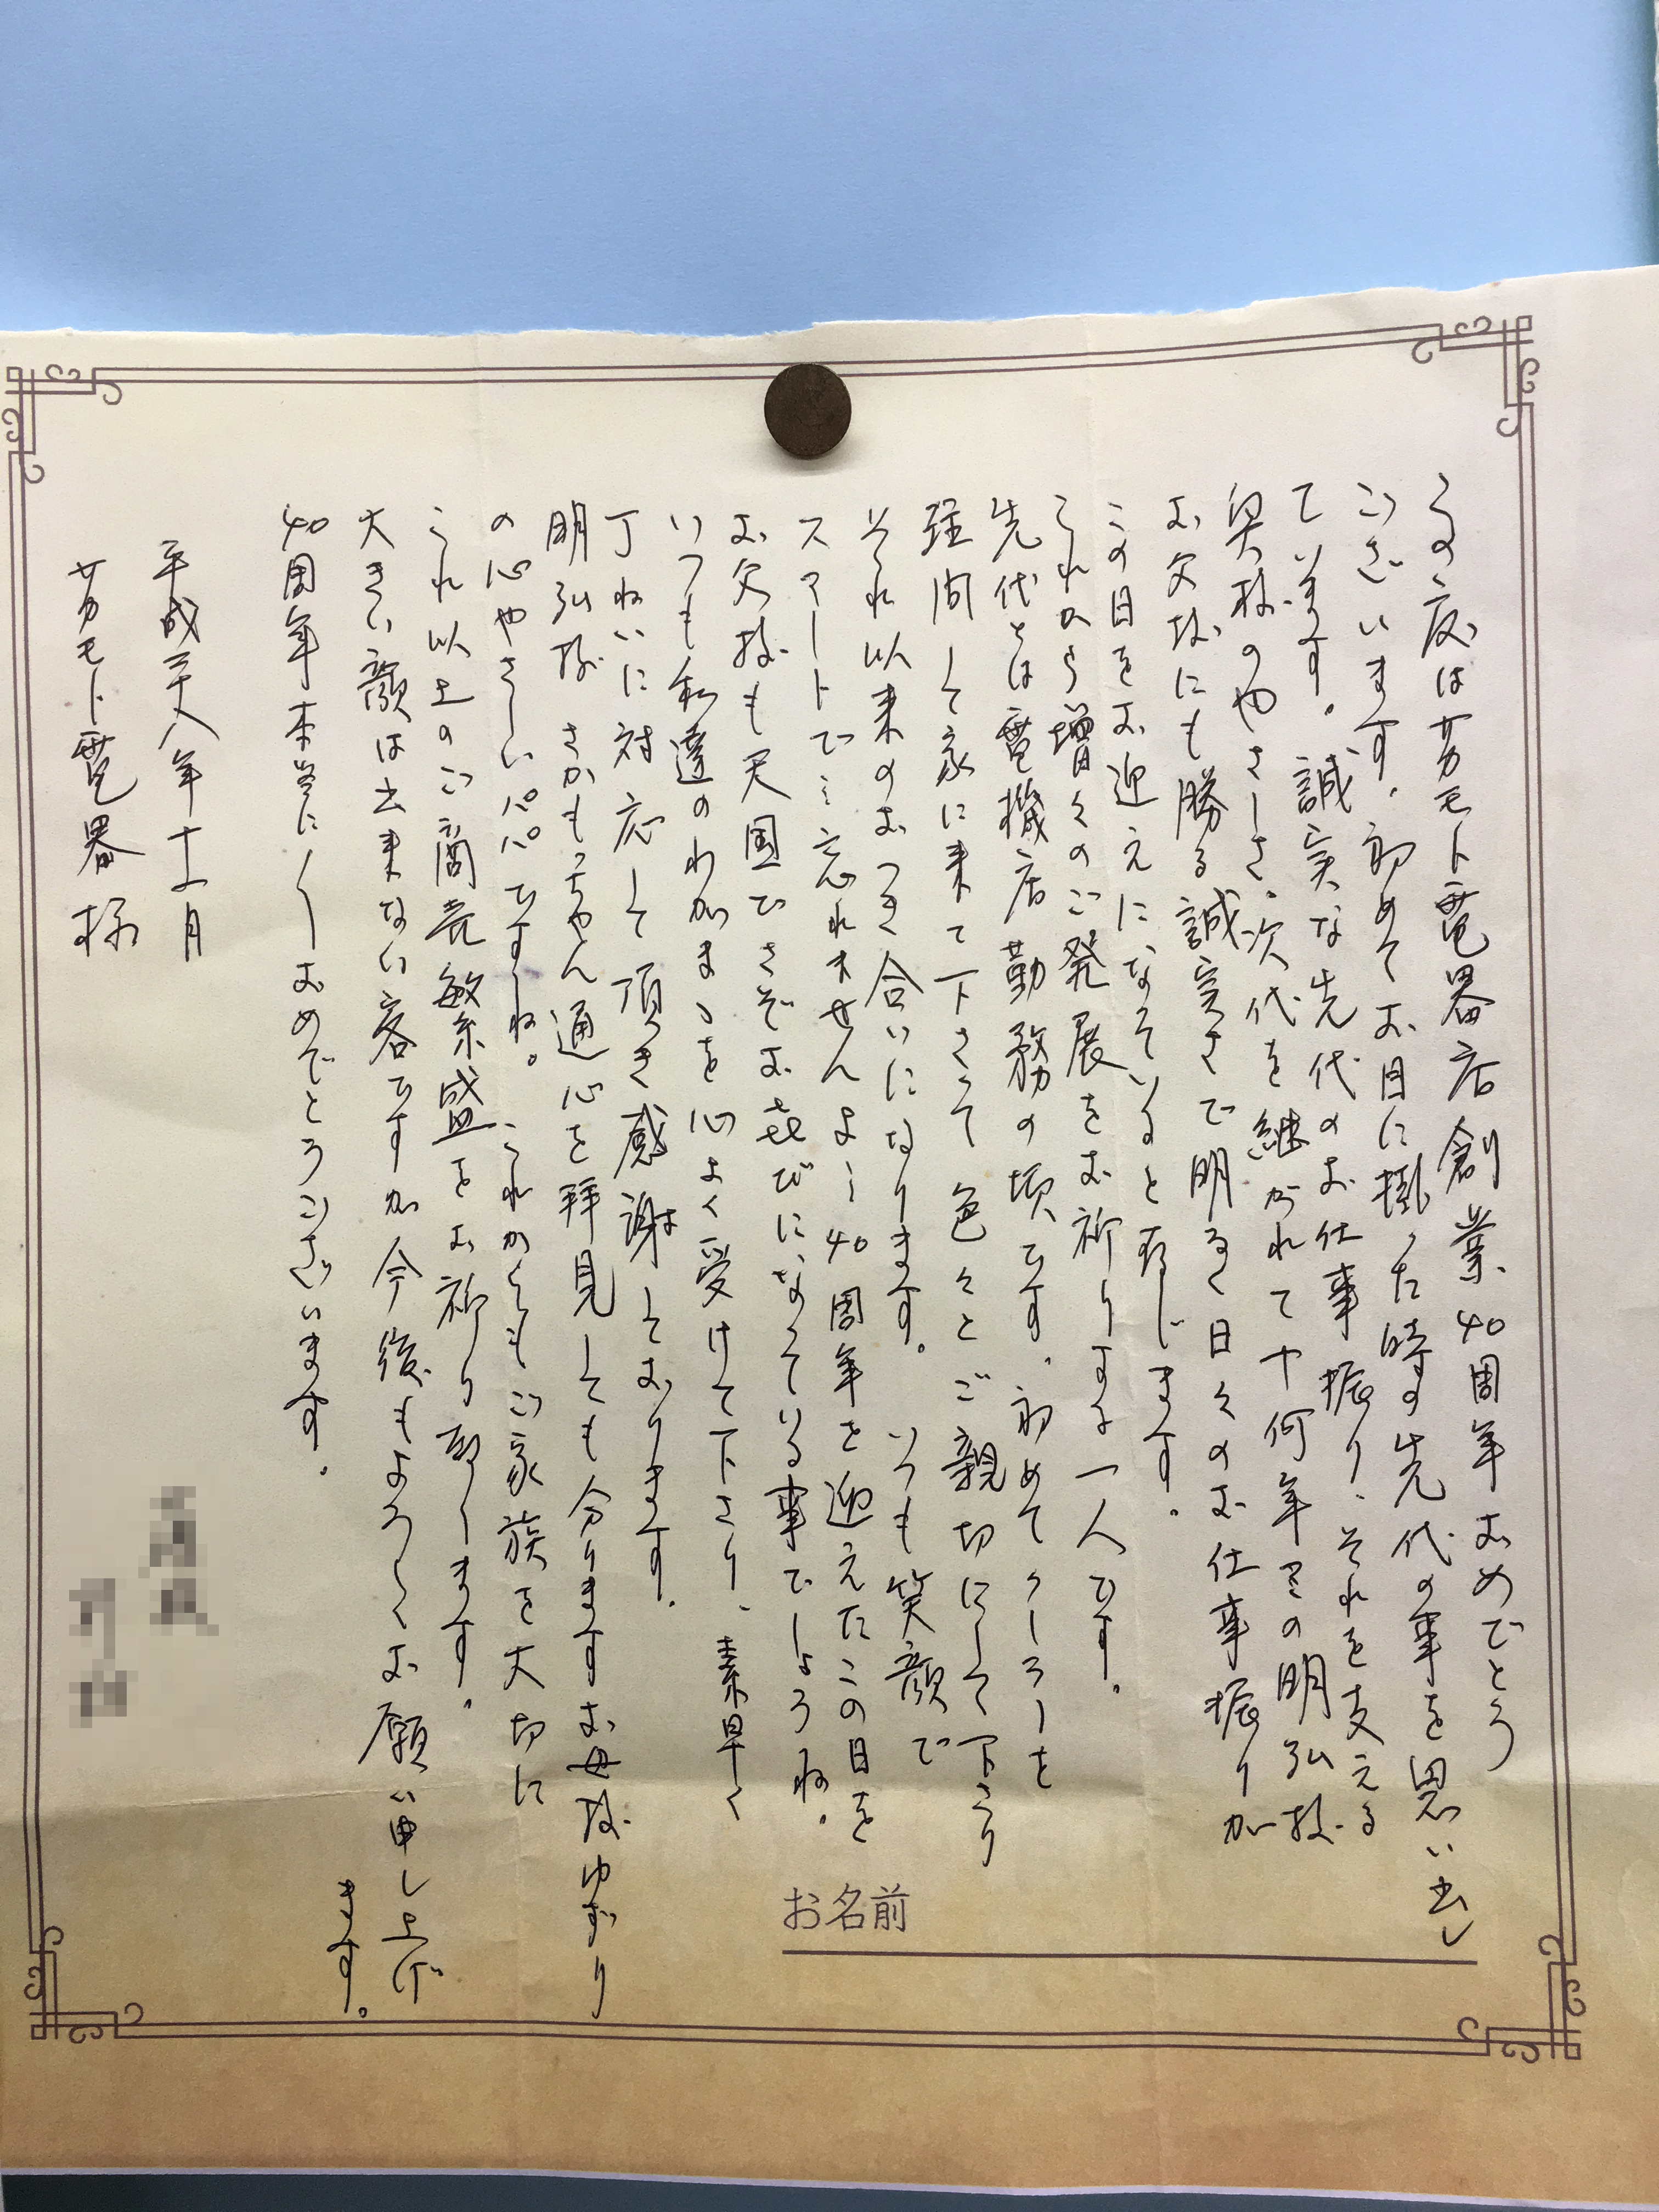 この度はサカモト電器店創業40周年おめでとう
ございます。初めてお目に掛った時の先代の事を思い出し
ています。誠実な先代のお仕事振り、それを支える
奥様のやさしさ。次代を継がれて十何年 の明弘様
お父様にも勝る誠実さで明るく日々のお仕事振りが
この日をお迎えになっていると存じます。
これから増々のご発展をお祈りする一人です。
先代とは電機店勤務の頃です。初めてクーラーを
して家に来て下さって色々とご親切にして下さり
それ以来のおつき合いになります。いつも笑顔で
スマートで… 忘れませんよ… 40周年を迎えたこの日を
お父様も天国でさぞお喜びになっている事でしょうね。
いつも私達のわがまゝを心よく受けて下さり、素早く
丁ねいに対応して頂き感謝しております。
明弘様 さかもっちゃん通心を拝見しても分りますお母様ゆずり
の心やさしいパパですね。これからもご家族を大切に
これ以上のご商売繁盛をお祈り致します。
大きい顔は出来ない客ですが今後もよろしくお願い申し上げ
ます。
40周年本当に〱おめでとうございます。
平成二十八年十一月
サカモト電器様
お名前